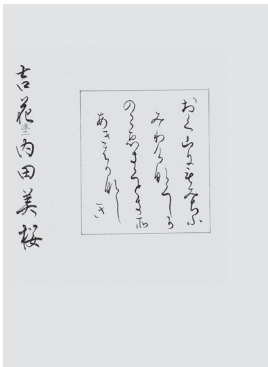 おく山にもみちふ
みわけ那くしか
のこゑきくとき所
あきはか那し
き
吉花
内田美桜